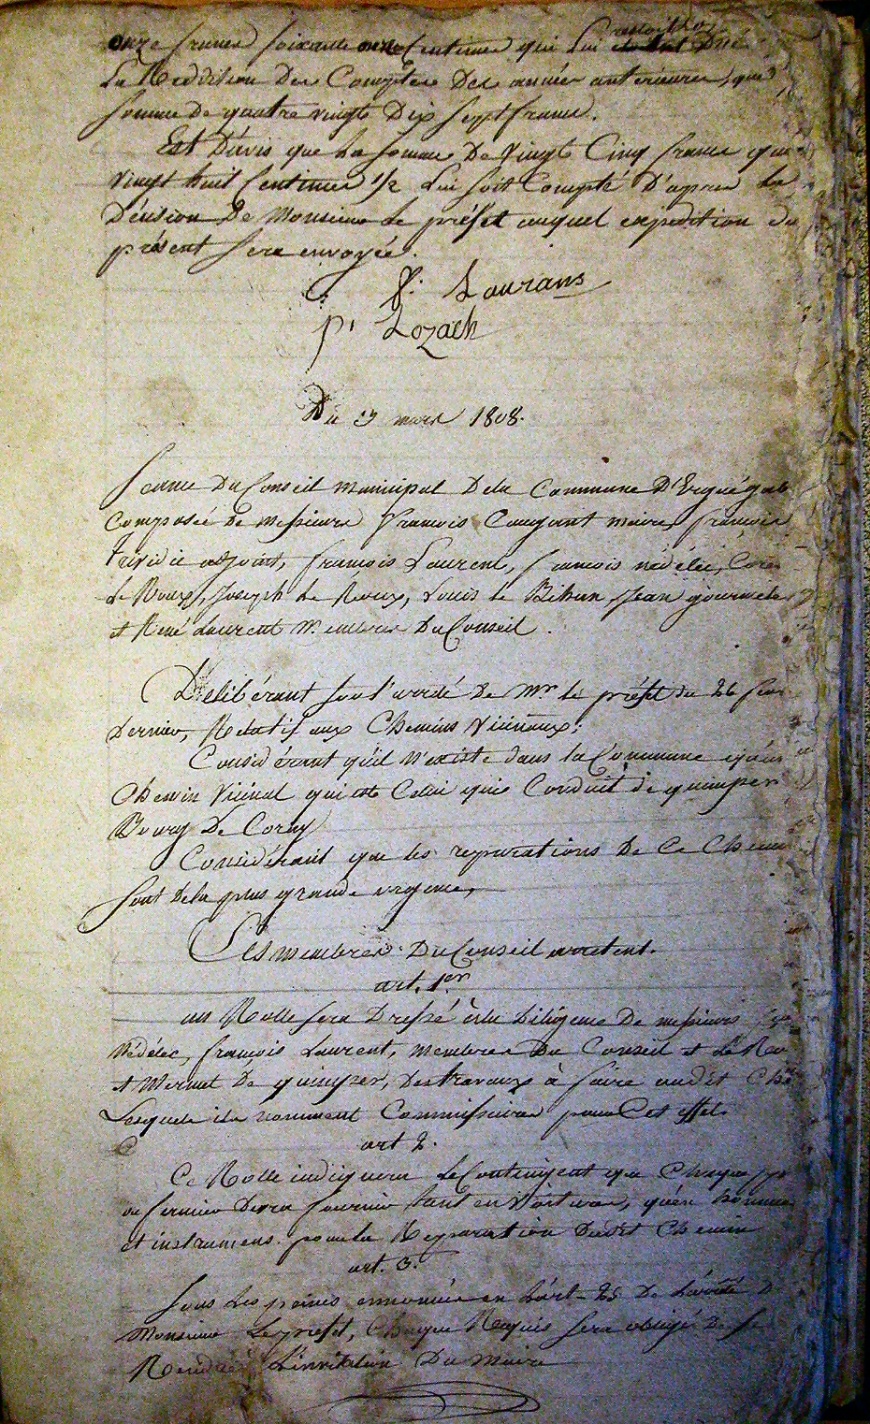 onze francs soixante onze Centimes qui Lui
La Reddition Des Comptes Des années anterieures, que
Somme de quatre vingts Dix Sept francs.
Est D'avis que La Somme De Vingt Cinq francs
Vingt huit Centimes 1/2 Lui Soit Compté D'apres La
Décision De Monsieur Le préfet auquel expedition du
présent Sera envoyée.
f: Laurans
p! Lozach
Du mars 1808.
Seance Du Conseil Municipal Dela Commune D'Erguégab
Composée De Messieurs François Caugant maire, françois
adjoint, françois Laurent, françois nédélec,
Le Roux, Joseph Le Roux, Louis Le Bihan Jean
et René Laurent Membres Du Conseil.
Delibérant Sur l'arrêté De Mr le préfet du 26
Dernier, Relatif aux Chemins Vicinaux;
Considérant qu'il N'existe dans la Commune
Chemin Vicinal qui est Celui qui Conduit de quimper
Bourg De Coray
Considérant que les réparations De Ce Chemin
Sont Dela plus grande urgence,
Les Membres Du Conseil arretent.
art. 1er
un Rolle Sera Dressé à la Diligence De messieurs
Nédélec, françois Laurent, Membres Du Conseil et
et Mermet De quimper, Des travaux à faire audit
Lesquels ils nomment Commissaires pour Cet effet.
art 2.
Ce Rolle indiquera Le Contingent que Chaque
ou fermier Devra fournir tant en Voitures, qu'en hommes
et instrumens pour la Réparation Dudit Chemin
art. 3.
Sous Les peines énnoncées en L'art. 25 De L'arrêté
Monsieur Le préfet, Chaque Requis Sera obligé De Se
Rendre à L'invitation Du Maire